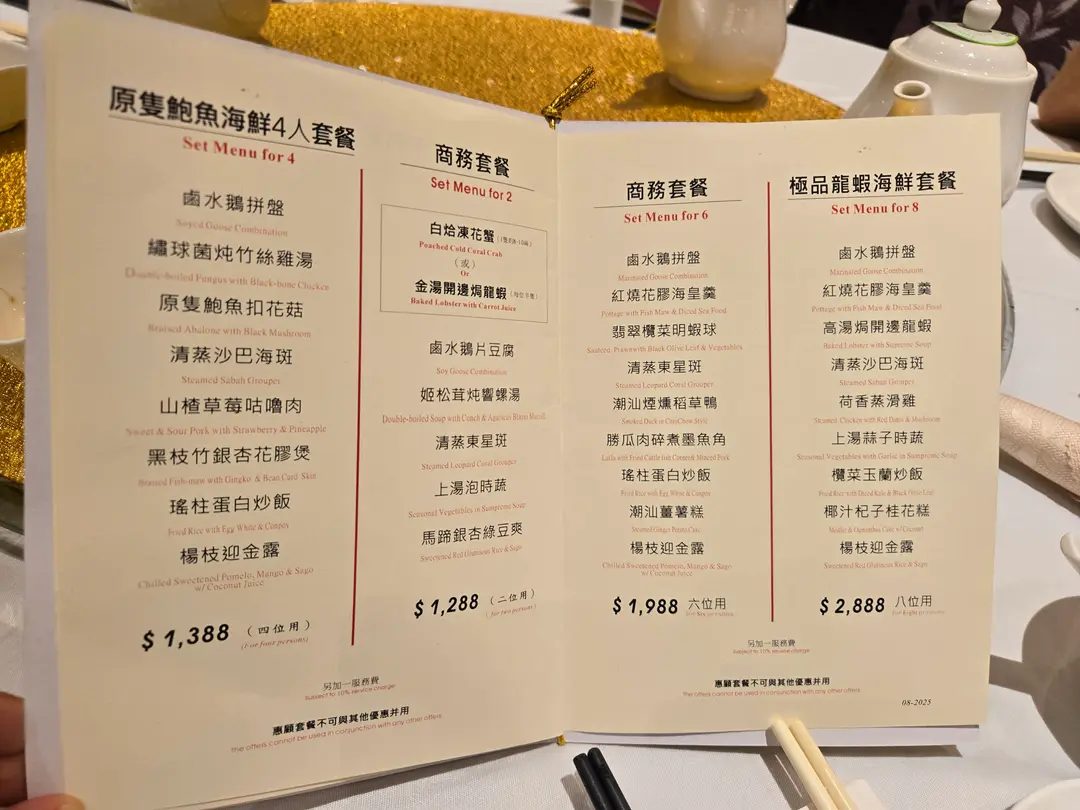 原隻鮑魚海鮮4人套餐
Set Menu for 4
鹵水鵝拼盤
Soyed Goose Combination
繡球菌炖竹絲雞湯
Double-boiled Fungus with Black-bone Chicken
原隻鮑魚扣花菇
Braised Abalone with Black Mushroom
清蒸沙巴海斑
Steamed Sabah Grouper
山楂草莓咕嚕肉
Sweet & Sour Pork with Strawberry & Pineapple
黑枝竹銀杏花膠煲
Braised Fish-maw with Gingko & Bean Curd Skin
瑤柱蛋白炒飯
Fried Rice with Egg White & Conpoy
楊枝迎金露
Chilled Sweetened Pomelo, Mango & Sago
w/ Coconut Juice
$1,388 (四位用)
(For four persons)
商務套餐
Set Menu for 2
白烚凍花蟹
Poached Cold Coral Crab
(或)
Or
金湯開邊焗龍蝦
Baked Lobster with Carrot Juice
鹵水鵝片豆腐
Soy Goose Combination
姬松茸炖響螺湯
Double-boiled Soup with Conch & Agaricus Blazei Murill
清蒸東星斑
Steamed Leopard Coral Grouper
上湯泡時蔬
Seasonal Vegetables in Sumpreme Soup
馬蹄銀杏綠豆爽
Sweetened Red Glutinous Rice & Sago
$1,288 (二位用)
( for two persons)
另加一服務費
Subject to 10% service charge
惠顧套餐不可與其他優惠并用
The offers cannot be used in conjunction with any other offers
商務套餐
Set Menu for 6
鹵水鵝拼盤
Marinated Goose Combination
紅燒花膠海皇羹
Pottage with Fish Maw & Diced Sea Food
翡翠欖菜明蝦球
Sauteed Prawn with Black Olive Leaf & Vegetables
清蒸東星斑
Steamed Leopard Coral Grouper
潮汕煙燻稻草鴨
Smoked Duck in ChiuChow Style
勝瓜肉碎煮墨魚角
瑤柱蛋白炒飯
Fried Rice with Egg White & Conpoy
潮汕薑薯糕
Steamed Ginger Potato Cake
楊枝迎金露
Chilled Sweetened Pomelo, Mango & Sago
w/ Coconut Juice
$1,988 六位用
for six persons
極品龍蝦海鮮套餐
Set Menu for 8
鹵水鵝拼盤
Marinated Goose Combination
紅燒花膠海皇羹
Pottage with Fish Maw & Diced Sea Food
高湯焗開邊龍蝦
Baked Lobster with Supreme Soup
清蒸沙巴海斑
Steamed Sabah Grouper
荷香蒸滑雞
Steamed Chicken with Red Dates & Mushroom
上湯蒜子時蔬
Seasonal Vegetables with Garlic in Sumpreme Soup
欖菜玉蘭炒飯
Fried Rice with Diced Kale & Black Olive Leaf
椰汁杞子桂花糕
Medlar & Osmanthus Cake w/Coconut
楊枝迎金露
Sweetened Red Glutinous Rice & Sago
$2,888 八位用
for Eight persons
另加一服務費
Subject to 10% service charge
惠顧套餐不可與其他優惠并用
The offers cannot be used in conjunction with any other offers
08-2025